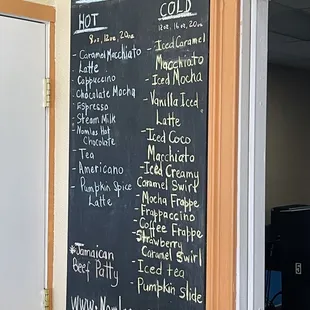 HOT
8oz, 12oz, 20oz
- Caramel Macchiato
- Latte
- Cappuccino
- Chocolate Mocha
- Espresso
- Steam Milk
- Nomles Hot
Chocolate
- Tea
- Americano
- Pumpkin Spice
Latte
*Jamaican
Beef Patty
COLD
12oz, 16oz, 20oz
- Iced Caramel
Macchiato
- Iced Mocha
- Vanilla Iced
Latte
- Iced Coco
Macchiato
- Iced Creamy
Caramel Swirl
- Mocha Frappe
- Frappaccino
- Coffee Frappe
- Strawberry
Caramel Swirl
- Iced tea
- Pumpkin slide